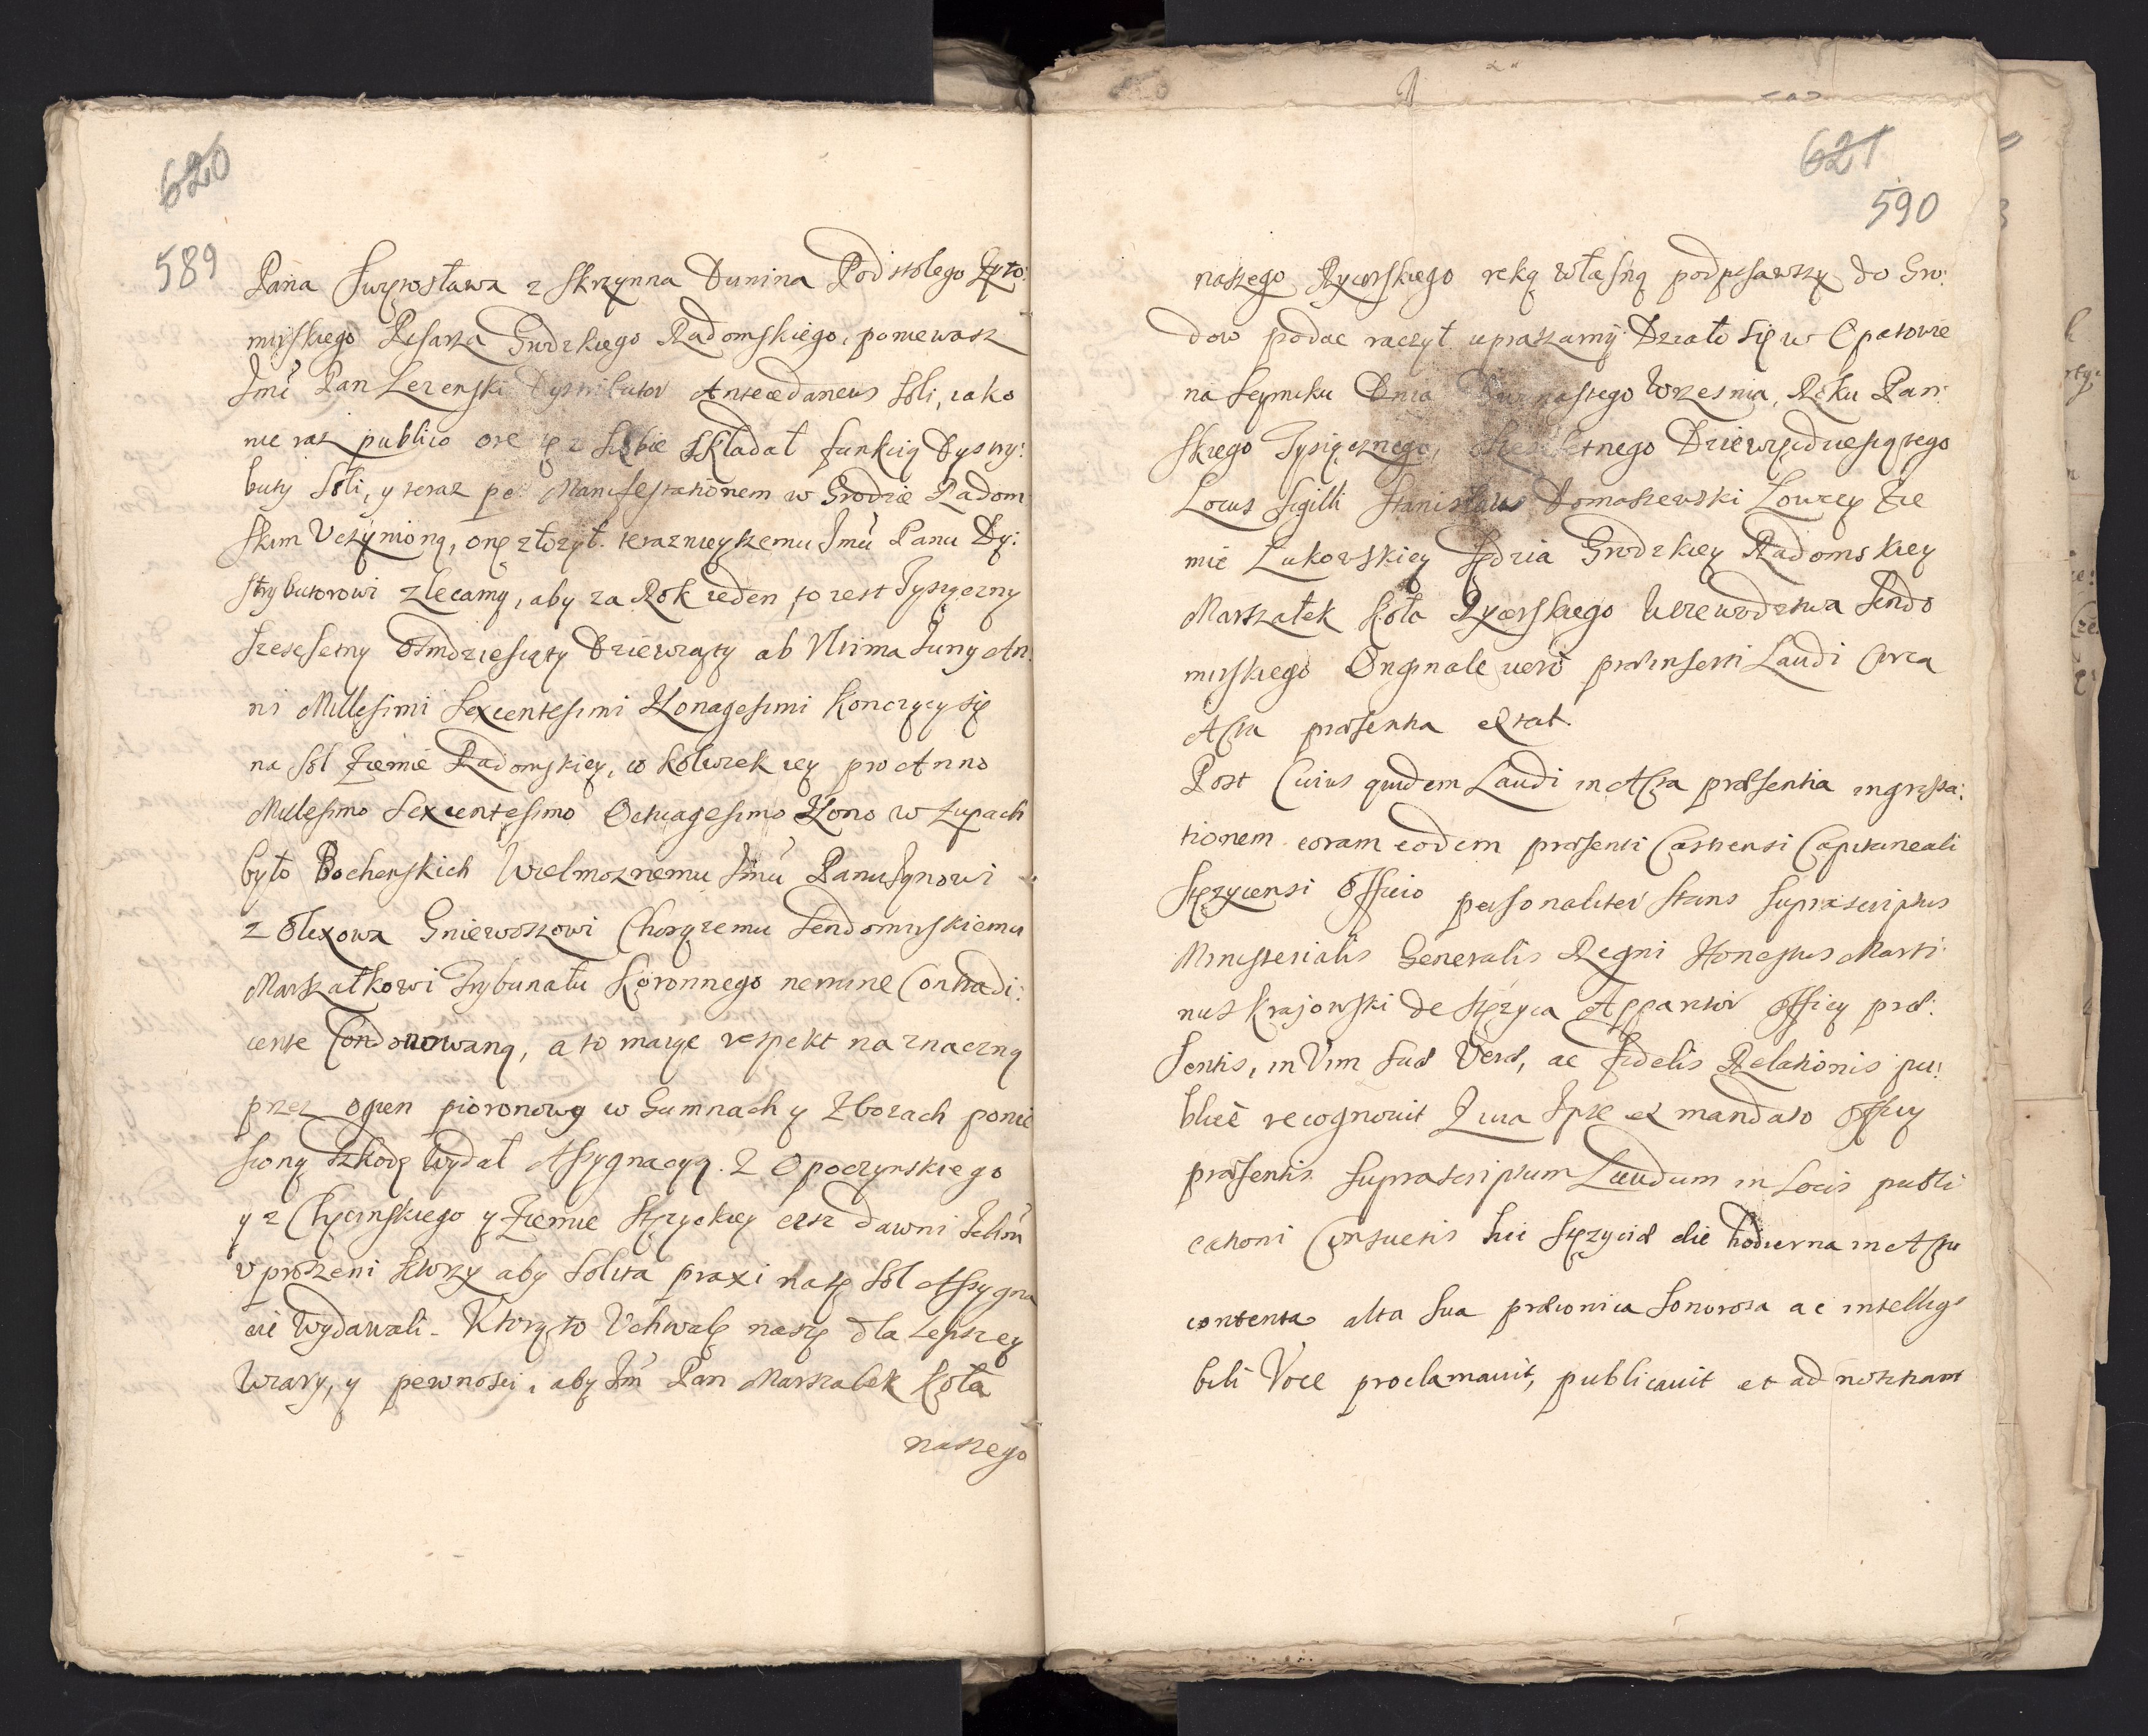 620
589
Pana Swiętosława z Skrzynna Dunina Podstolego Żyto:
mirskiego Pisarza Grodzkiego Radomskiego, poniewasz
Jmć Pan Lezenski Dystributor Antecedaneus Soli, iako
nie raz publico ore tę z siebie składał funkcią Dystry:
buty Soli, y teraz per Manifestationem w Grodzie Radom
skim Uczynioną, onę złozył. terazniejszemu Jmu Panu Dy:
strybutorowi zlecamy, aby za Rok ieden to iest Tysiączny
Szescsetny Osmdziesiąty Dziewiąty ab Ultima Juny An:
ni Millesimi Sexcentesimi Nonagesimi konczący się
na sol Ziemie Radomskiey, cokolwiek iey pro Anno
Millesimo Sexcentesimo Octuagesimo Nono w Zupach
było Bochenskich Wielmoznemu Jmu Panu
z Olexowa Gniewoszowi Chorązemu Sendomirskiemu
Marszałkowi Trybunału Koronnego nemine Contradi:
cente Condonowaną, a to maiąc respekt na znaczną
przez ogien pioronowy w Gumnach y Zbozach ponie
sioną szkodę Wydał Assygnacyą. Z Opoczynskiego
y z Chęcinskiego y Ziemie Stęzyckiey ciz dawni Ichm
uproszeni którzy aby solita praxi naszę sol Assygna
cie Wydawali. Którą to Uchwałę naszę dla Lepszey
Wiary, y pewnosci, aby Jm Pan Marszałek Koła
naszego
621
590
naszego Rycerskiego ręką własną podpisawszy do Gro:
dow podac raczył upraszamy. Działo się w Opatowie
na Seymiku Dnia Wrzesnia, Roku Pan:
skiego Tysiącznego, Szescsetnego Dziewięcdziesiątego
Locus Sigilli Stanisław Domaszewski Łowczy Zie
mie Łukowskiey Sędzia Grodzkiey Radomskiey
Marszałek Koła Rycerskiego Woiewodztwa Sendo
mirskiego Originale vero præinserti Laudi Circa
Acta præsentia extat.
Post Cuius quidem Laudi in Acta præsentia ingrossa:
tionem coram eodem præsenti Castrensi Capitaneali
Stęzycensi Officio personaliter stans suprascriptus
Ministerialis Generalis Regni Honestus Marti:
nus Krajowski de Stęzyca Apparitor Officy præ:
sentis, in Vim suæ Veræ, ac fidelis Relationis pu:
blice recognovit Quia Ipse ex mandato Officy
præsentis suprascriptum Laudum in Locis publi
cationi Consuetis hic Stęzyciæ die hodierna in Actu
contenta alta sua præconica sonorosa ac intelligi
bili Voce proclamavit, publicavit et ad notitiam